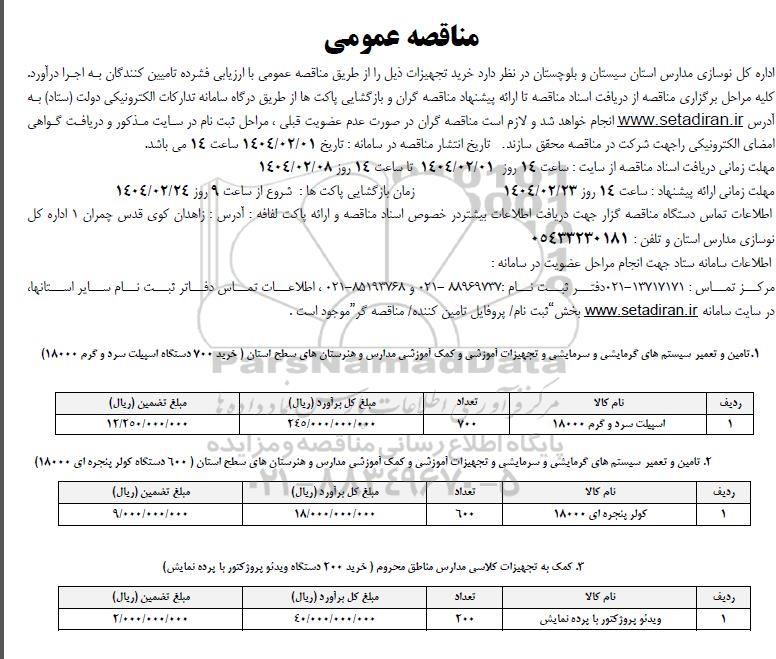 مناقصه عمومی
اداره کل نوسازی مدارس استان سیستان و بلوچستان در نظر دارد خرید تجهیزات ذیل را از طریق مناقصه عمومی با ارزیابی فشرده تامیین کنندگان به اجرا درآورد.
کلیه مراحل برگزاری مناقصه از دریافت اسناد مناقصه تا ارائه پیشنهاد مناقصه گران و بازگشایی پاکت ها از طریق درگاه سامانه تدارکات الکترونیکی دولت (ستاد) به
آدرس www.setadiran.ir انجام خواهد شد و لازم است مناقصه گران در صورت عدم عضویت قبلی ، مراحل ثبت نام در سایت مذکور و دریافت گواهی
امضای الکترونیکی راجهت شرکت در مناقصه محقق سازند. تاریخ انتشار مناقصه در سامانه : تاریخ ۱۴۰۴/۰۲/۰۱ ساعت ۱۴ می باشد.
مهلت زمانی دریافت اسناد مناقصه از سایت : ساعت ۱۴ روز ۱۴۰۴/۰۲/۰۱ تا ساعت ۱۴ روز ۱۴۰۴/۰۲/۰۸
مهلت زمانی ارائه پیشنهاد : ساعت ۱۴ روز ۱۴۰۴/۰۲/۲۳ زمان بازگشایی پاکت ها : شروع از ساعت ۹ روز ۱۴۰۴/۰۲/۲۴
اطلاعات تماس دستگاه مناقصه گزار جهت دریافت اطلاعات بیشتردر خصوص اسناد مناقصه و ارائه پاکت لفافه : آدرس : زاهدان کوی قدس چمران ۱ اداره کل
نوسازی مدارس استان و تلفن : ۰۵۴۳۳۲۳۰۱۸۱
اطلاعات سامانه ستاد جهت انجام مراحل عضویت در سامانه :
مرکز تماس : ۱۳۷۱۷۱۷۱-۰۲۱دفتر ثبت نام :۸۸۹۶۹۷۳۷ -۰۲۱ و ۸۵۱۹۳۷۶۸-۰۲۱ ، اطلاعات تماس دفاتر ثبت نام سایر استانها،
در سایت سامانه www.setadiran.ir بخش“ثبت نام/ پروفایل تامین کننده/ مناقصه گر”موجود است .
ParsNamadData
۱.تامین و تعمیر سیستم های گرمایشی و سرمایشی و تجهیزات آموزشی و کمک آموزشی مدارس و هنرستان های سطح استان ( خرید ۷۰۰ دستگاه اسپیلت سرد و گرم ۱۸۰۰۰)
مرکز فرآوری اطلاعات پارس نماد داده ها
ردیف نام کالا تعداد مبلغ کل برآورد (ریال) مبلغ تضمین (ریال)
۱ اسپیلت سرد و گرم ۱۸۰۰۰ ۷۰۰ ۲۴۵/۰۰۰/۰۰۰/۰۰۰ ۱۲/۲۵۰/۰۰۰/۰۰۰
پایگاه اطلاع رسانی مناقصه و مزایده
۲. تامین و تعمیر سیستم های گرمایشی و سرمایشی و تجهیزات آموزشی و کمک آموزشی مدارس و هنرستان های سطح استان ( ۶۰۰ دستگاه کولر پنجره ای ۱۸۰۰۰)
۰۲۱-۸۸۳۴۹۶۷۰-۵
ردیف نام کالا تعداد مبلغ کل برآورد (ریال) مبلغ تضمین (ریال)
۱ کولر پنجره ای ۱۸۰۰۰ ۶۰۰ ۱۸/۰۰۰/۰۰۰/۰۰۰ ۹/۰۰۰/۰۰۰/۰۰۰
۳. کمک به تجهیزات کلاسی مدارس مناطق محروم ( خرید ۲۰۰ دستگاه ویدئو پروژکتور با پرده نمایش)
ردیف نام کالا تعداد مبلغ کل برآورد (ریال) مبلغ تضمین (ریال)
۱ ویدئو پروژکتور با پرده نمایش ۲۰۰ ۴۰/۰۰۰/۰۰۰/۰۰۰ ۲/۰۰۰/۰۰۰/۰۰۰